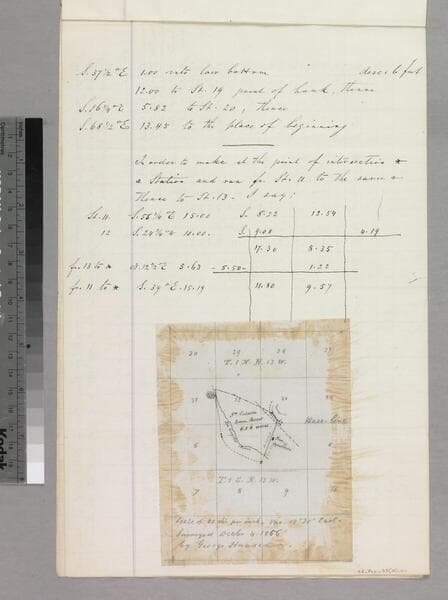 S. 37½° E 1.00 into low bottom desc. 6 feet
12.00 to St. 19 point of bank, thence
S. 16¾° E 5.82 to St. 20, thence
S. 68½° E 13.45 to the place of beginning
In order to make at the point of intersection *
a Station and run fr. St. 11 to the same &
thence to St. 13. I say:
St. 11. S. 56¼° E 15.00 S. 8.22 12.54
12 S. 24¾° W 11.00. S. 9.08 4.19
17.30 8.35
fr. 13 to * N. 12½° E 5.63 - 5.50 1.22
fr. 11 to * S. 39° E. 15.19 11.80 9.57
30 29 28 27
T. 1 N. R. 12 W.
31 32
Base line
6
T. 1 S. R. 12 W.
7 8 9
Surveyed Decbr 4. 1866
by George Hansen
Kodak